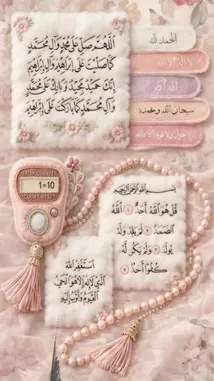 اللهم صل على محمد وآل محمد
كما صليت على إبراهيم وآل إبراهيم
إنك حميد مجيد وبارك على محمد
وآل محمد كما باركت على إبراهيم
الحمد لله
لا إله إلا الله
الله أكبر
سبحان الله وبحمده
لا حول ولا قوة إلا بالله
1=10
بسم الله الرحمن الرحيم
قل هو الله أحد الله
الصمد لم يلد ولم
يولد ولم يكن له
كفوا أحد
أستغفر الله
الذي لا إله إلا هو الحي
القيوم وأتوب إليه